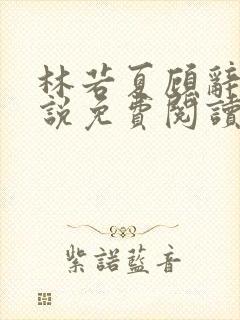 林若夏顾辭
說免費閱讀
紫諾藍音